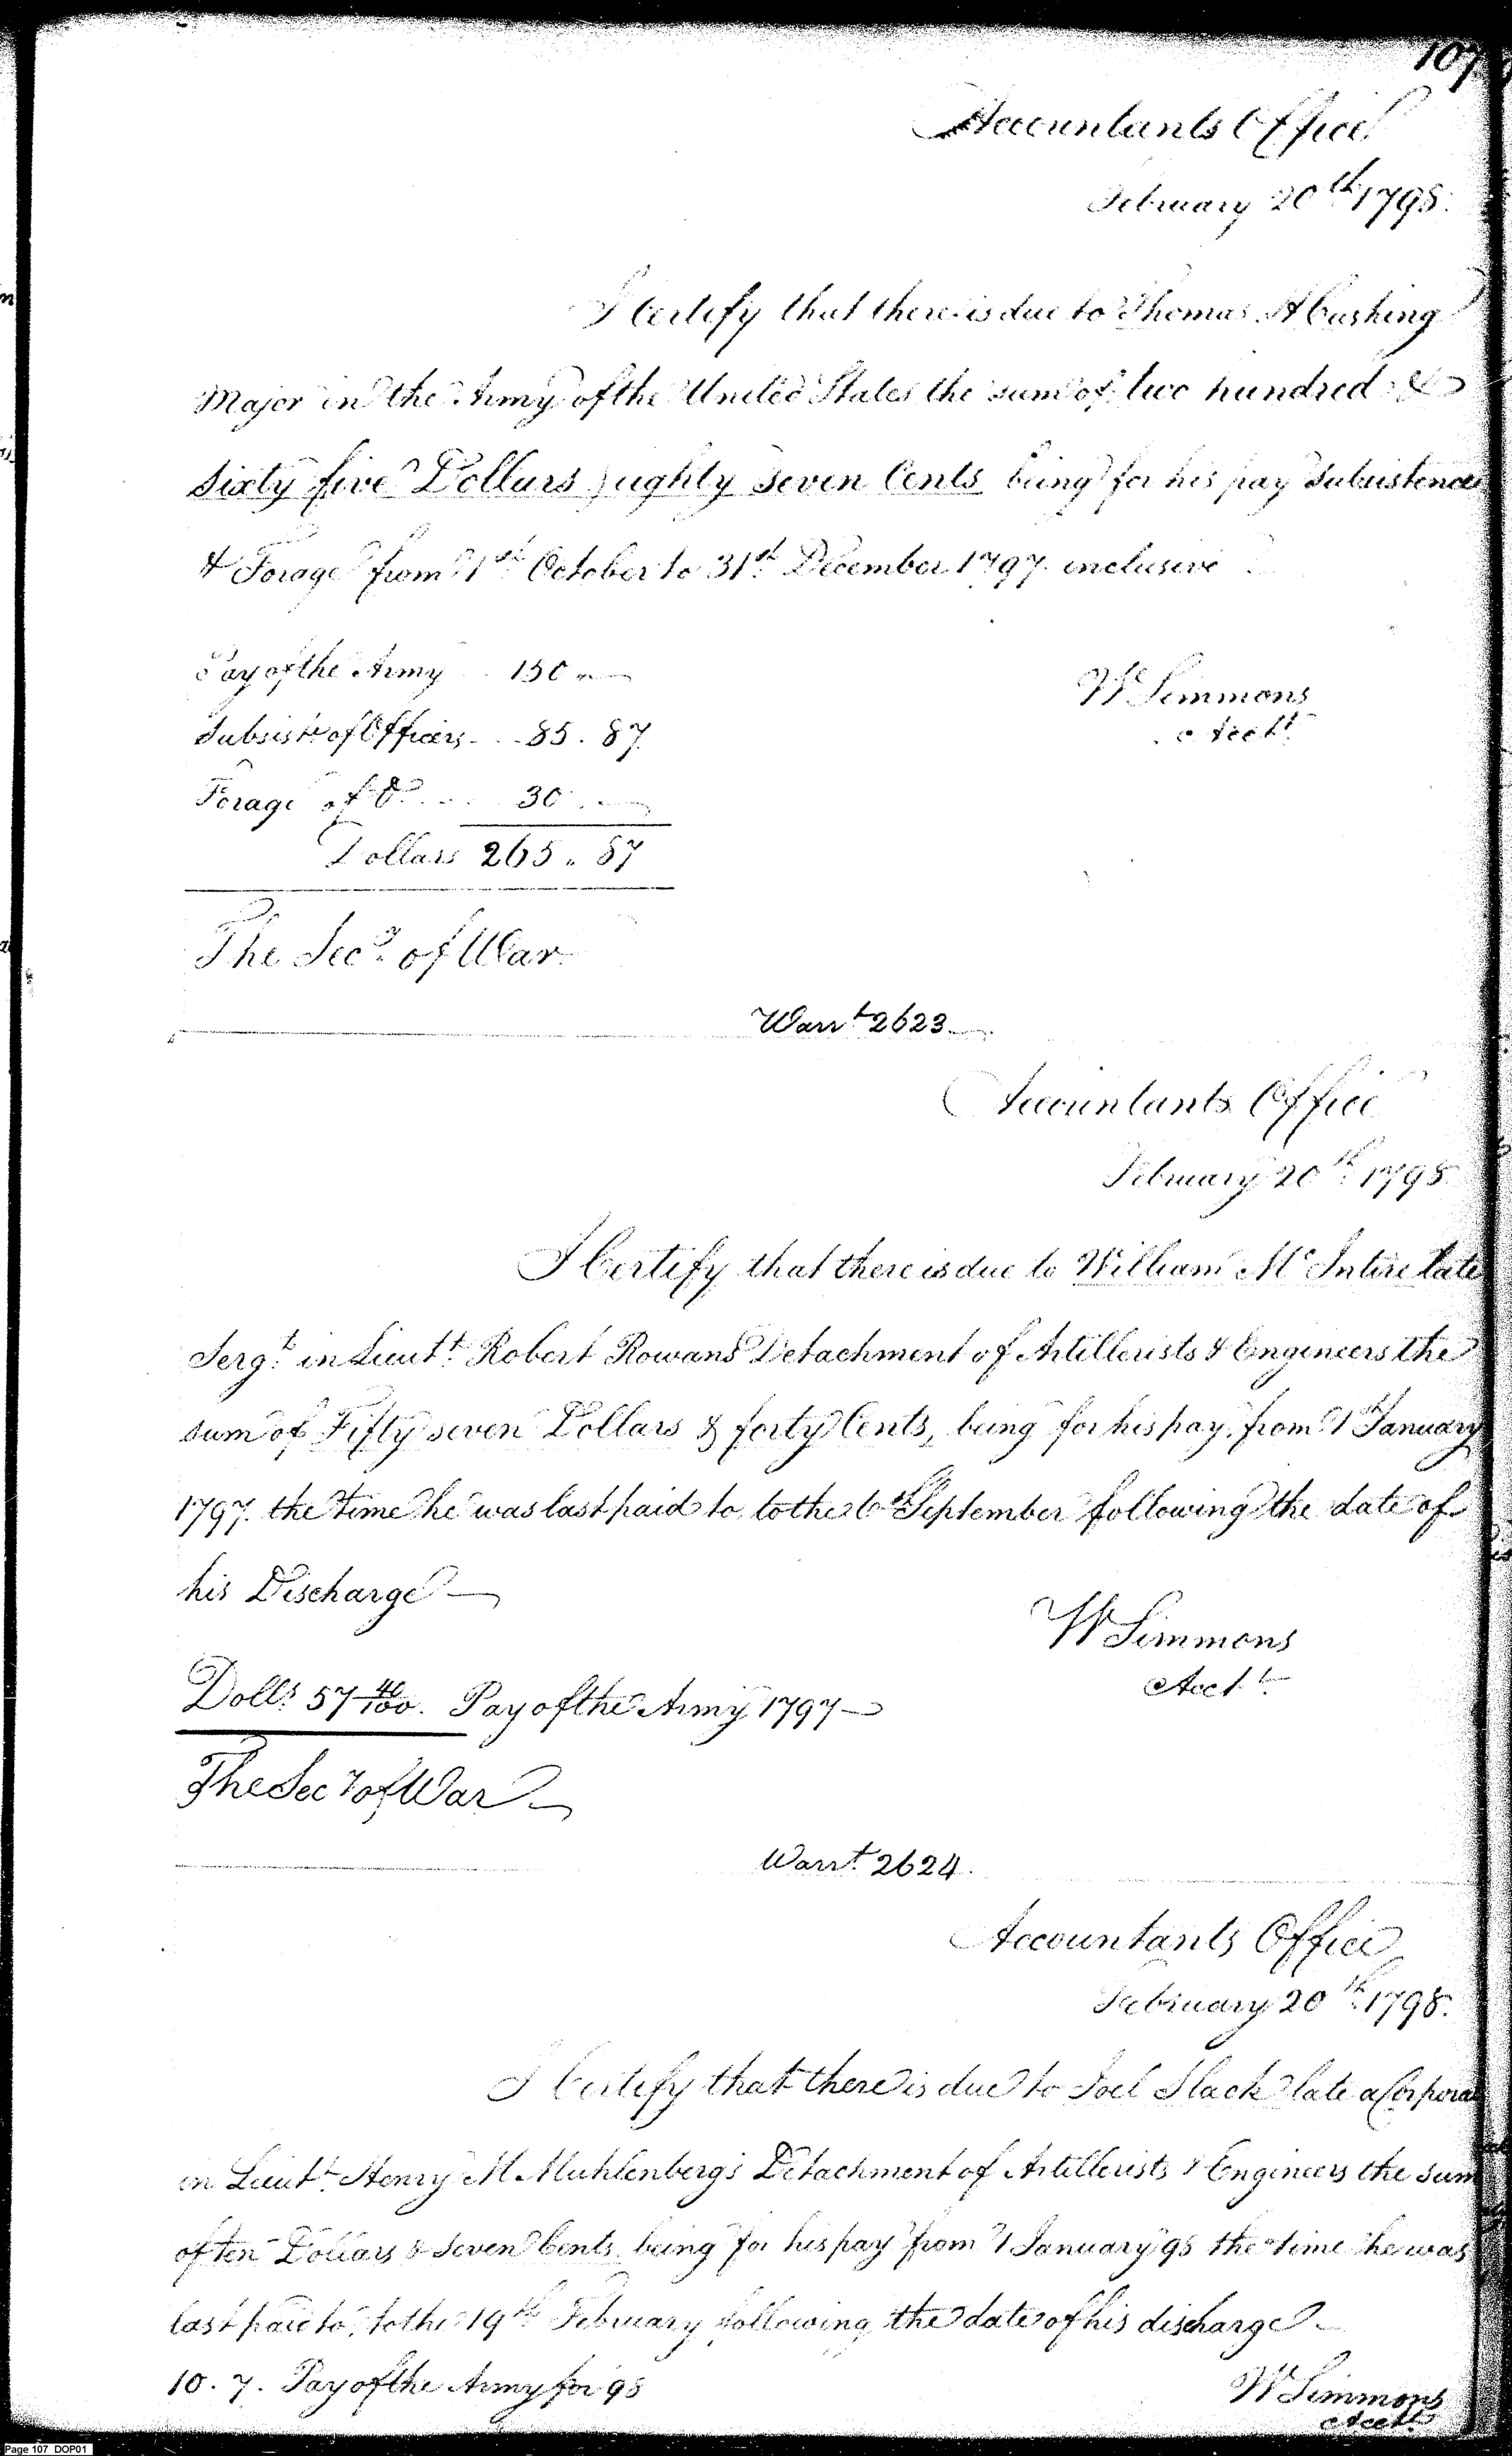 107
Accountants Office
February 20th 1798.
I Certify that there is due to Thomas H Cushing
Major in the Army of the United States the sum of two hundred &
sixty five Dollars, eighty seven Cents being for his pay subsistence
& Forage from 1st October to 31st December 1797 inclusive
Pay of the Army 150 "
W Simmons
Acct
Subsist of Officers 85 . 87
Forage of Do 30 .
Dollars 265 " 87
The Secy of War
Warrt 2623
Accountants Office
February 20th 1798
I Certify that there is due to William McIntire late
Sergt in Lieutt Robert Rowans Detachment of Artillerists & Engineers the
sum of Fifty seven Dollars & forty Cents, being for his pay from 1st January
1797 the time he was last paid to, to the 6th September following the date of
his Discharge
W Simmons
Acct
Dolls 57 40/100. Pay of the Army 1797
The Secy of War
Warrt 2624.
Accountants Office
February 20th 1798.
I Certify that there is due to Joel Slack late a Corporal
in Lieutt Henry M Muhlenbergs Detachment of Artillerists & Engineers the sum
of ten Dollars & Seven Cents being for his pay from 1 January 98 the time he was
last paid to, to the 19th February following the date of his discharge
10 . 7 . Pay of the Army for 98
W Simmons
Acct
Page 107 DOP01